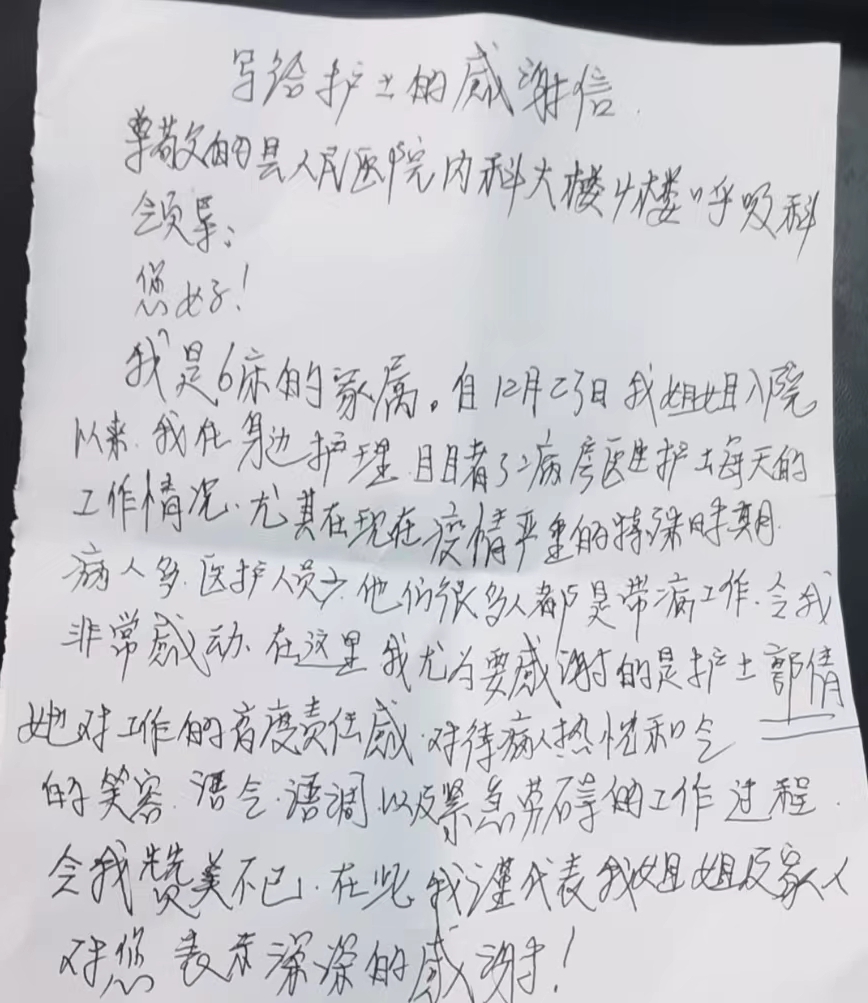 写给护士的感谢信.
尊敬的县人民医院内科大楼4楼呼吸科
领导:
您好!
我是6床的家属。自12月23日我姐姐入院
以来.我在身边护理.目睹了病房医护士每天的
工作情况.尤其在现在疫情严重的特殊时期.
病人多.医护人员少.他们很多人都是带病工作.令我
非常感动.在这里我尤为要感谢的是护士郭倩
她对工作的高度责任感.对待病人热忱和气
的笑容.语气.语调以及紧急的工作过程.
令我赞美不已.在此我谨代表我姐姐及家人
对您表示深深的感谢!